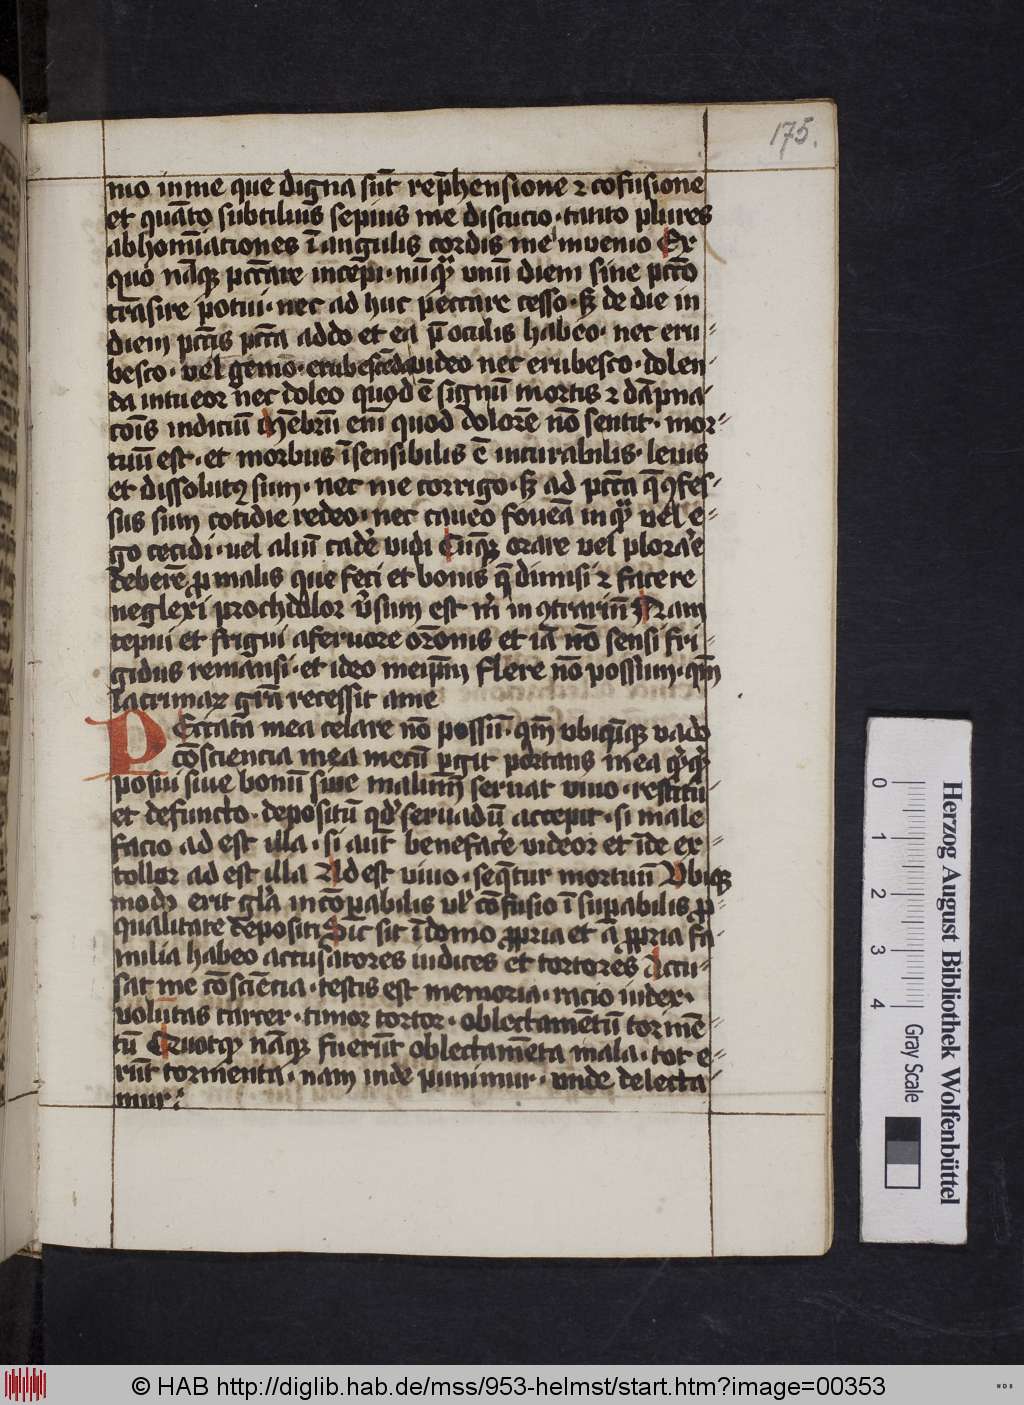 175.
nio in me que digna sūt rep̄hensione ⁊ cōfusione
et quāto subtilius sepius me discucio · tanto plures
abhomīationes ī angulis cordis mei invenio Ex
quo nāqꝫ pctāre incepi · nūqͣ unū diem sine pctō
trāsire potui · nec ad huc peccare cesso · sꝫ de die in
diem pctīs pctā addo et ea p̄ oculis habeo · nec eru-
besco · vel gemo · erubescēda video nec erubesco · dolen-
da intueor nec doleo quod ē signū mortis ⁊ dāpna-
cōis indiciū Mēbrū enī quod dolorē nō sentit · mor-
tuū est · et morbus īsensibilis ē incurabilis · levis
et dissolutꝰ sum · nec me corrigo · sꝫ ad pctā q̄ ꝯfes-
sus sum cotidie redeo · nec caveo foveā in qͣ vel e-
go cecidi · vel aliū cadēr vidi Cūqꝫ orare vel plorāe
deberē ꝓ malis que feci et bonis q̄ dimisi ⁊ facere
neglexi proch dolor v̄sum est m̄ in ꝯtrariū Nam
tepui et frigui a fervore orōnis et iā nō sensi fri-
gidus remansi · et ideo meip̄m flere nō possum · qm̄
lacrimaꝝ grā recessit a me
PEccata mea celare nō possū · qm̄ ubiqūqꝫ vado
cōsciencia mea mecū ꝑgit portans in ea qͥcqͥd
posui sive bonū sive malum servat vivo · restitu
et defuncto · depositū qd̓ servādū accepit · si male
facio ad est illa · si aūt benefacēr videor et īde ex-
tollor ad est illa Adest vivo · seq̄tur mortuū Ubiqꝫ
modꝫ erit glā incōꝑabilis vel̓ cōfusio īsuꝑabilis ꝓ
qualitate depositi Sic sit ī domo ꝓpria et ā ꝓpria fa-
milia habeo accusatores iudices et tortores Accu-
sat me cōsciēcia · testis est memoria · racio iudex ·
volūtas carcer · timor tortor · oblectamētū tormē-
tū Quotqͦ nāqꝫ fuerūt oblectamēta mala · tot e-
rūt tormenta · nam inde punimur · unde delecta-
mur :
Herzog August Bibliothek Wolfenbüttel
0 1 2 3 4 Gray Scale
© HAB http://diglib.hab.de/mss/953-helmst/start.htm?image=00353